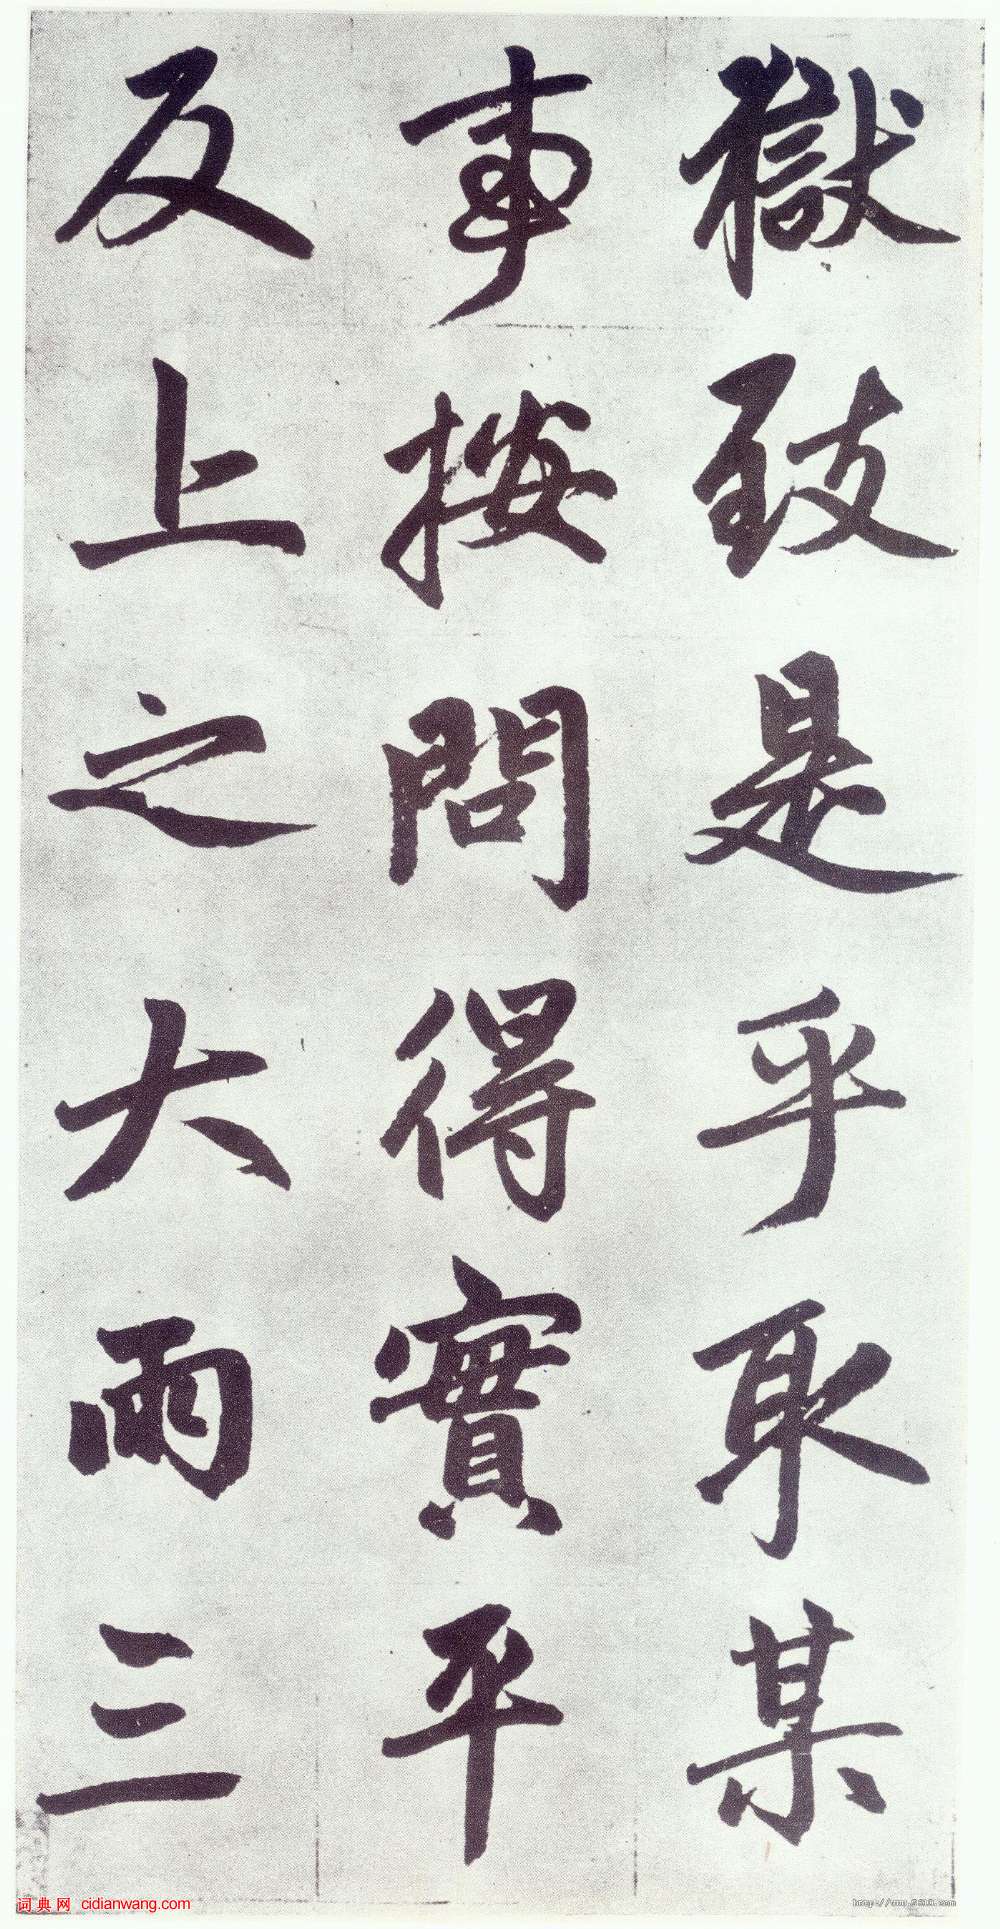 獄致是乎取某
事按問得實平
反上之大雨三
词典网 cidianwang.com